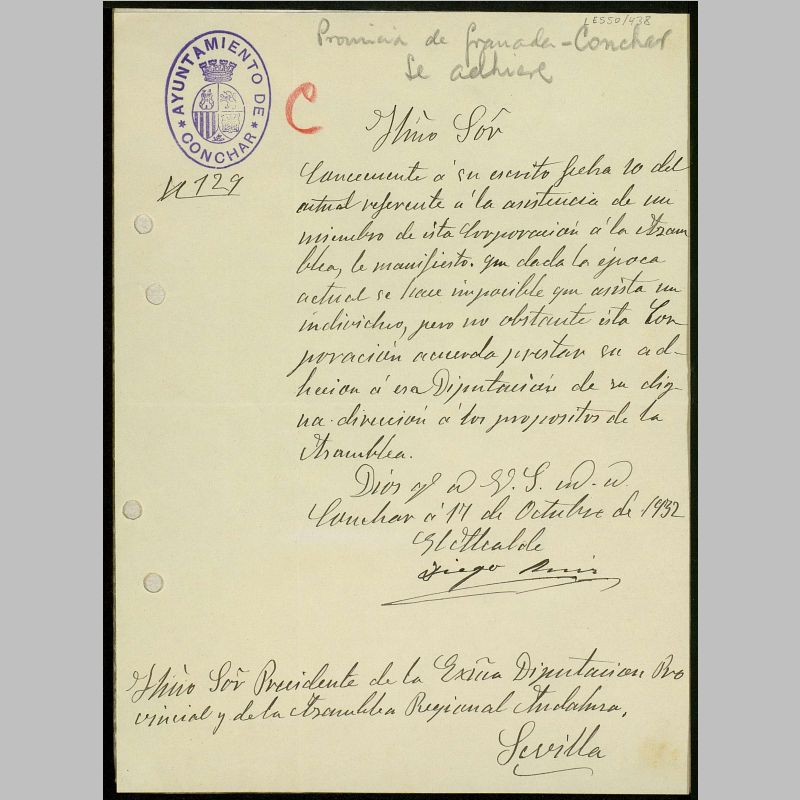 LE550/438
Provincia de Granada - Conchar
Se adhiere
AYUNTAMIENTO DE
* CONCHAR *
C
Nº 129
Iltmo Sōr
Concerniente á su escrito fecha 10 del
actual referente á la asistencia de un
miembro de esta Corporación á la Asam
blea, le manifiesto que dada la época
actual se hace imposible que asista un
individuo, pero no obstante esta Cor-
poración acuerda prestar su ad-
hecion á esa Diputación de su dig-
na dirección á los propositos de la
Asamblea.
Dios gᵉ a V. S. m. a.
Conchar á 17 de Octubre de 1932
El Alcalde
Diego Ruiz
Iltmo Sōr Precidente de la Exma Diputacion Pro
vincial y de la Asamblea Regional Andaluza,
Sevilla